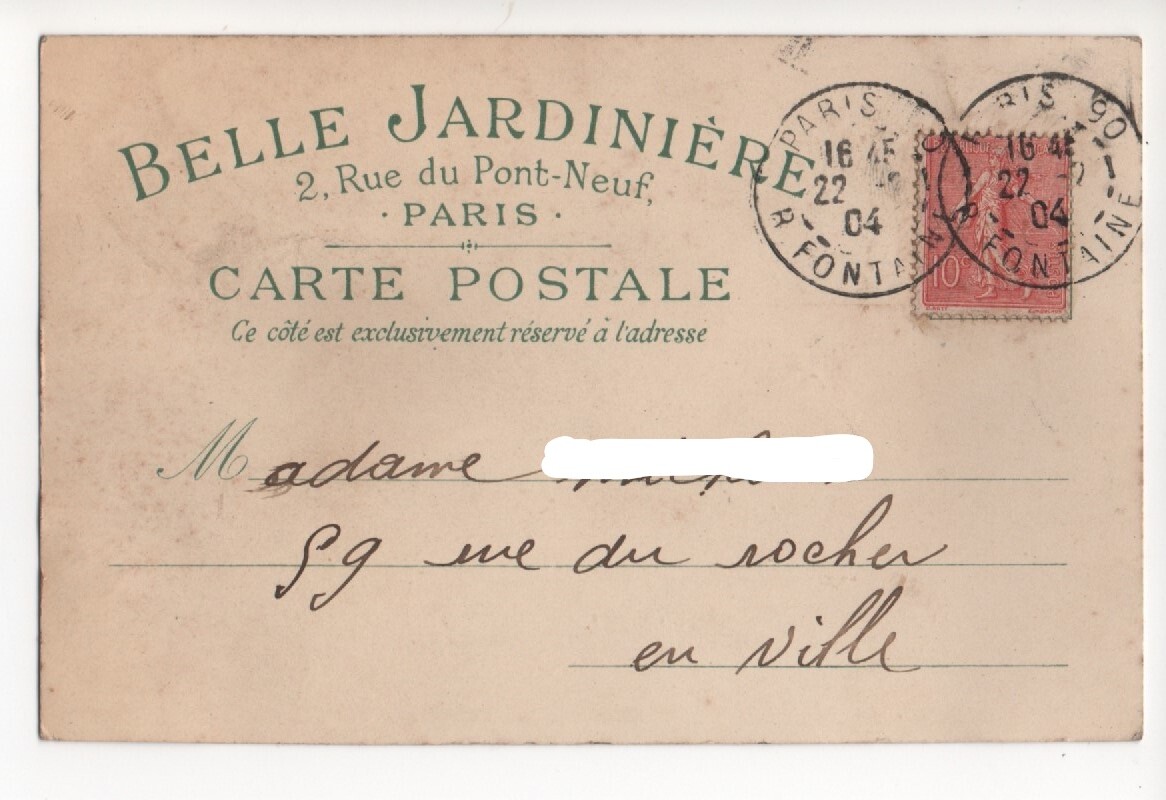 BELLE JARDINIÈRE
2, Rue du Pont-Neuf,
· PARIS ·
CARTE POSTALE
Ce côté est exclusivement réservé à l'adresse
PARIS
16 45
22
04
R FONTAINE
PARIS 90
16 45
22 2
04
R FONTAINE
10c
Madame
59 rue du rocher
en ville